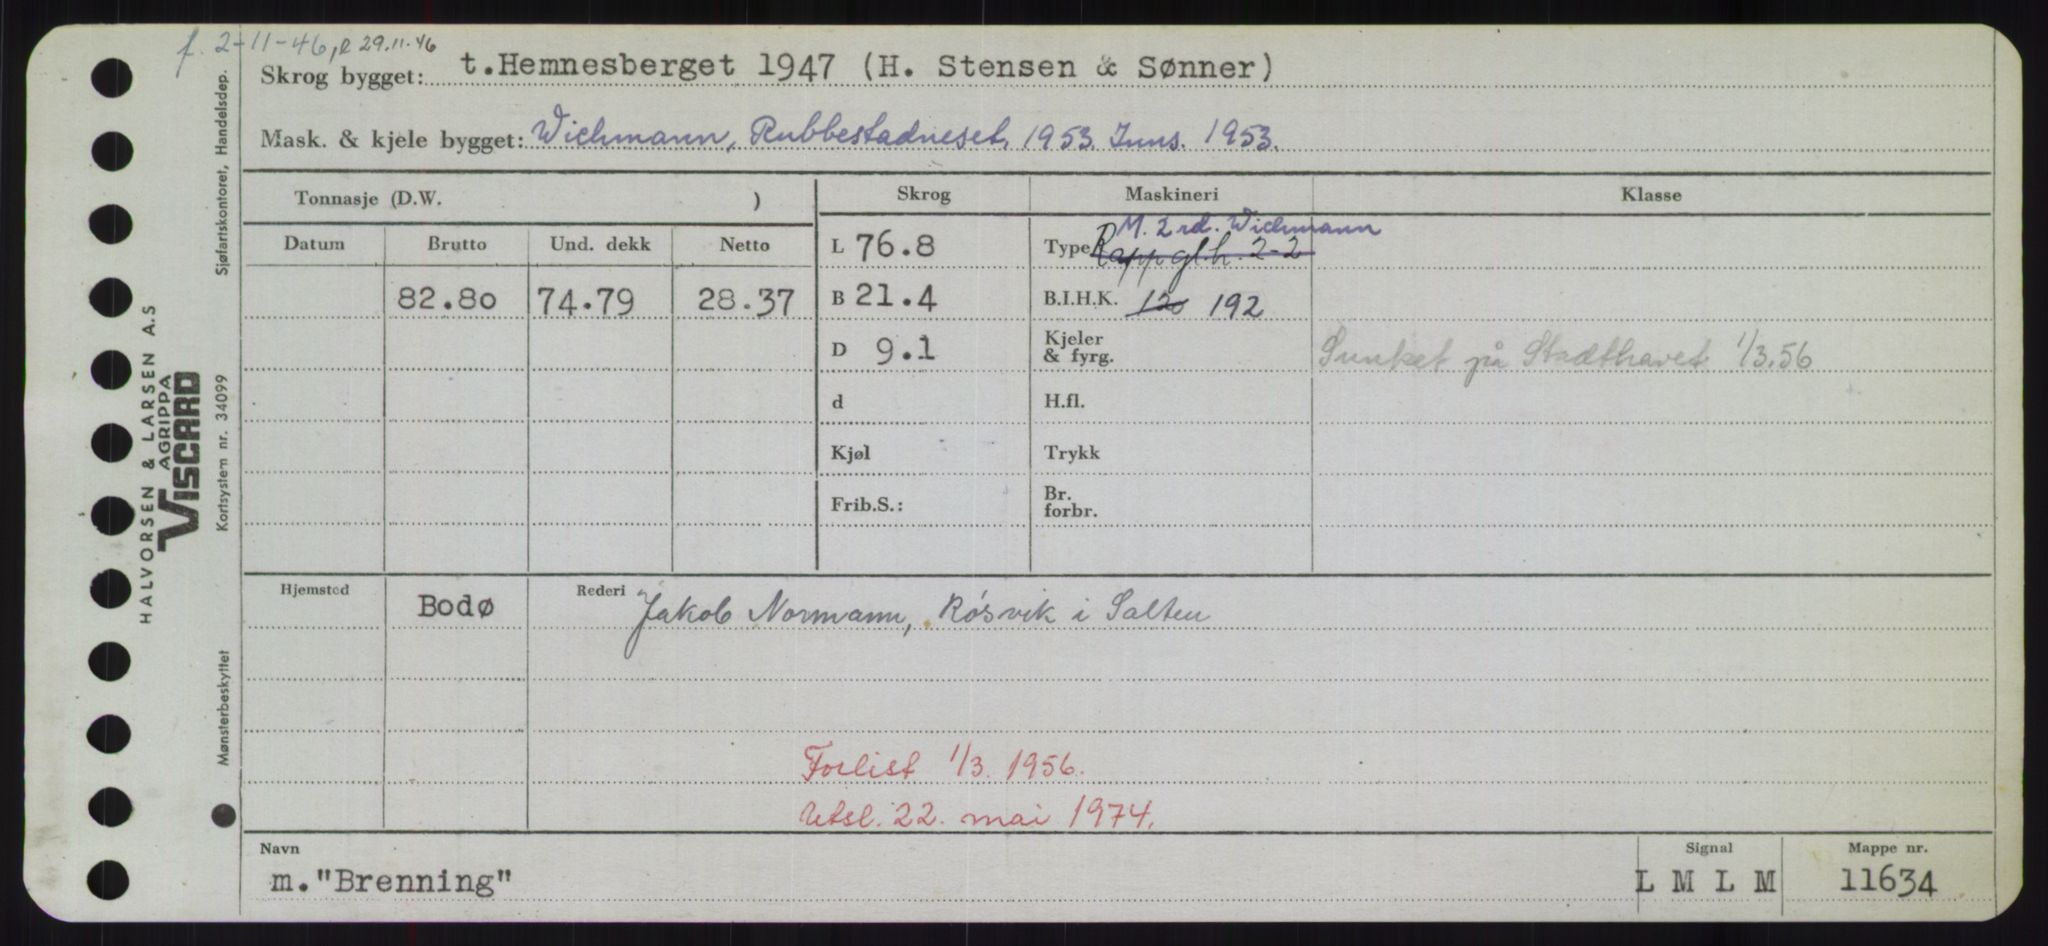 f. 2-11-46, R 29.11.46
Skrog bygget: t.Hemnesberget 1947 (H. Stensen & Sønner)
Mask. & kjele bygget: Wichmann, Rubbestadneset, 1953. Inns. 1953.
Tonnasje (D.W. )
Skrog
Maskineri
Klasse
Datum
Brutto
Und. dekk
Netto
82.80
74.79
28.37
L 76.8
B 21.4
D 9.1
d
Kjøl
Frib.S.:
M. 2 rd. Wichmann
Type Rapp gl.h. 2-2
B.I.H.K. 120 192
Kjeler
& fyrg.
H.fl.
Trykk
Br.
forbr.
Sunket på Stadthavet 1/3.56
Hjemsted
Bodø
Rederi
Jakob Normann, Røsvik i Salten
Forlist 1/3. 1956.
Utsl. 22. mai 1974.
Navn
m."Brenning"
Signal
L M L M
Mappe nr.
11634
Sjøfartskontoret, Handelsdep.
Kortsystem nr. 34099
Mønsterbeskyttet
HALVORSEN & LARSEN A.S
AGRIPPA
VISCARD